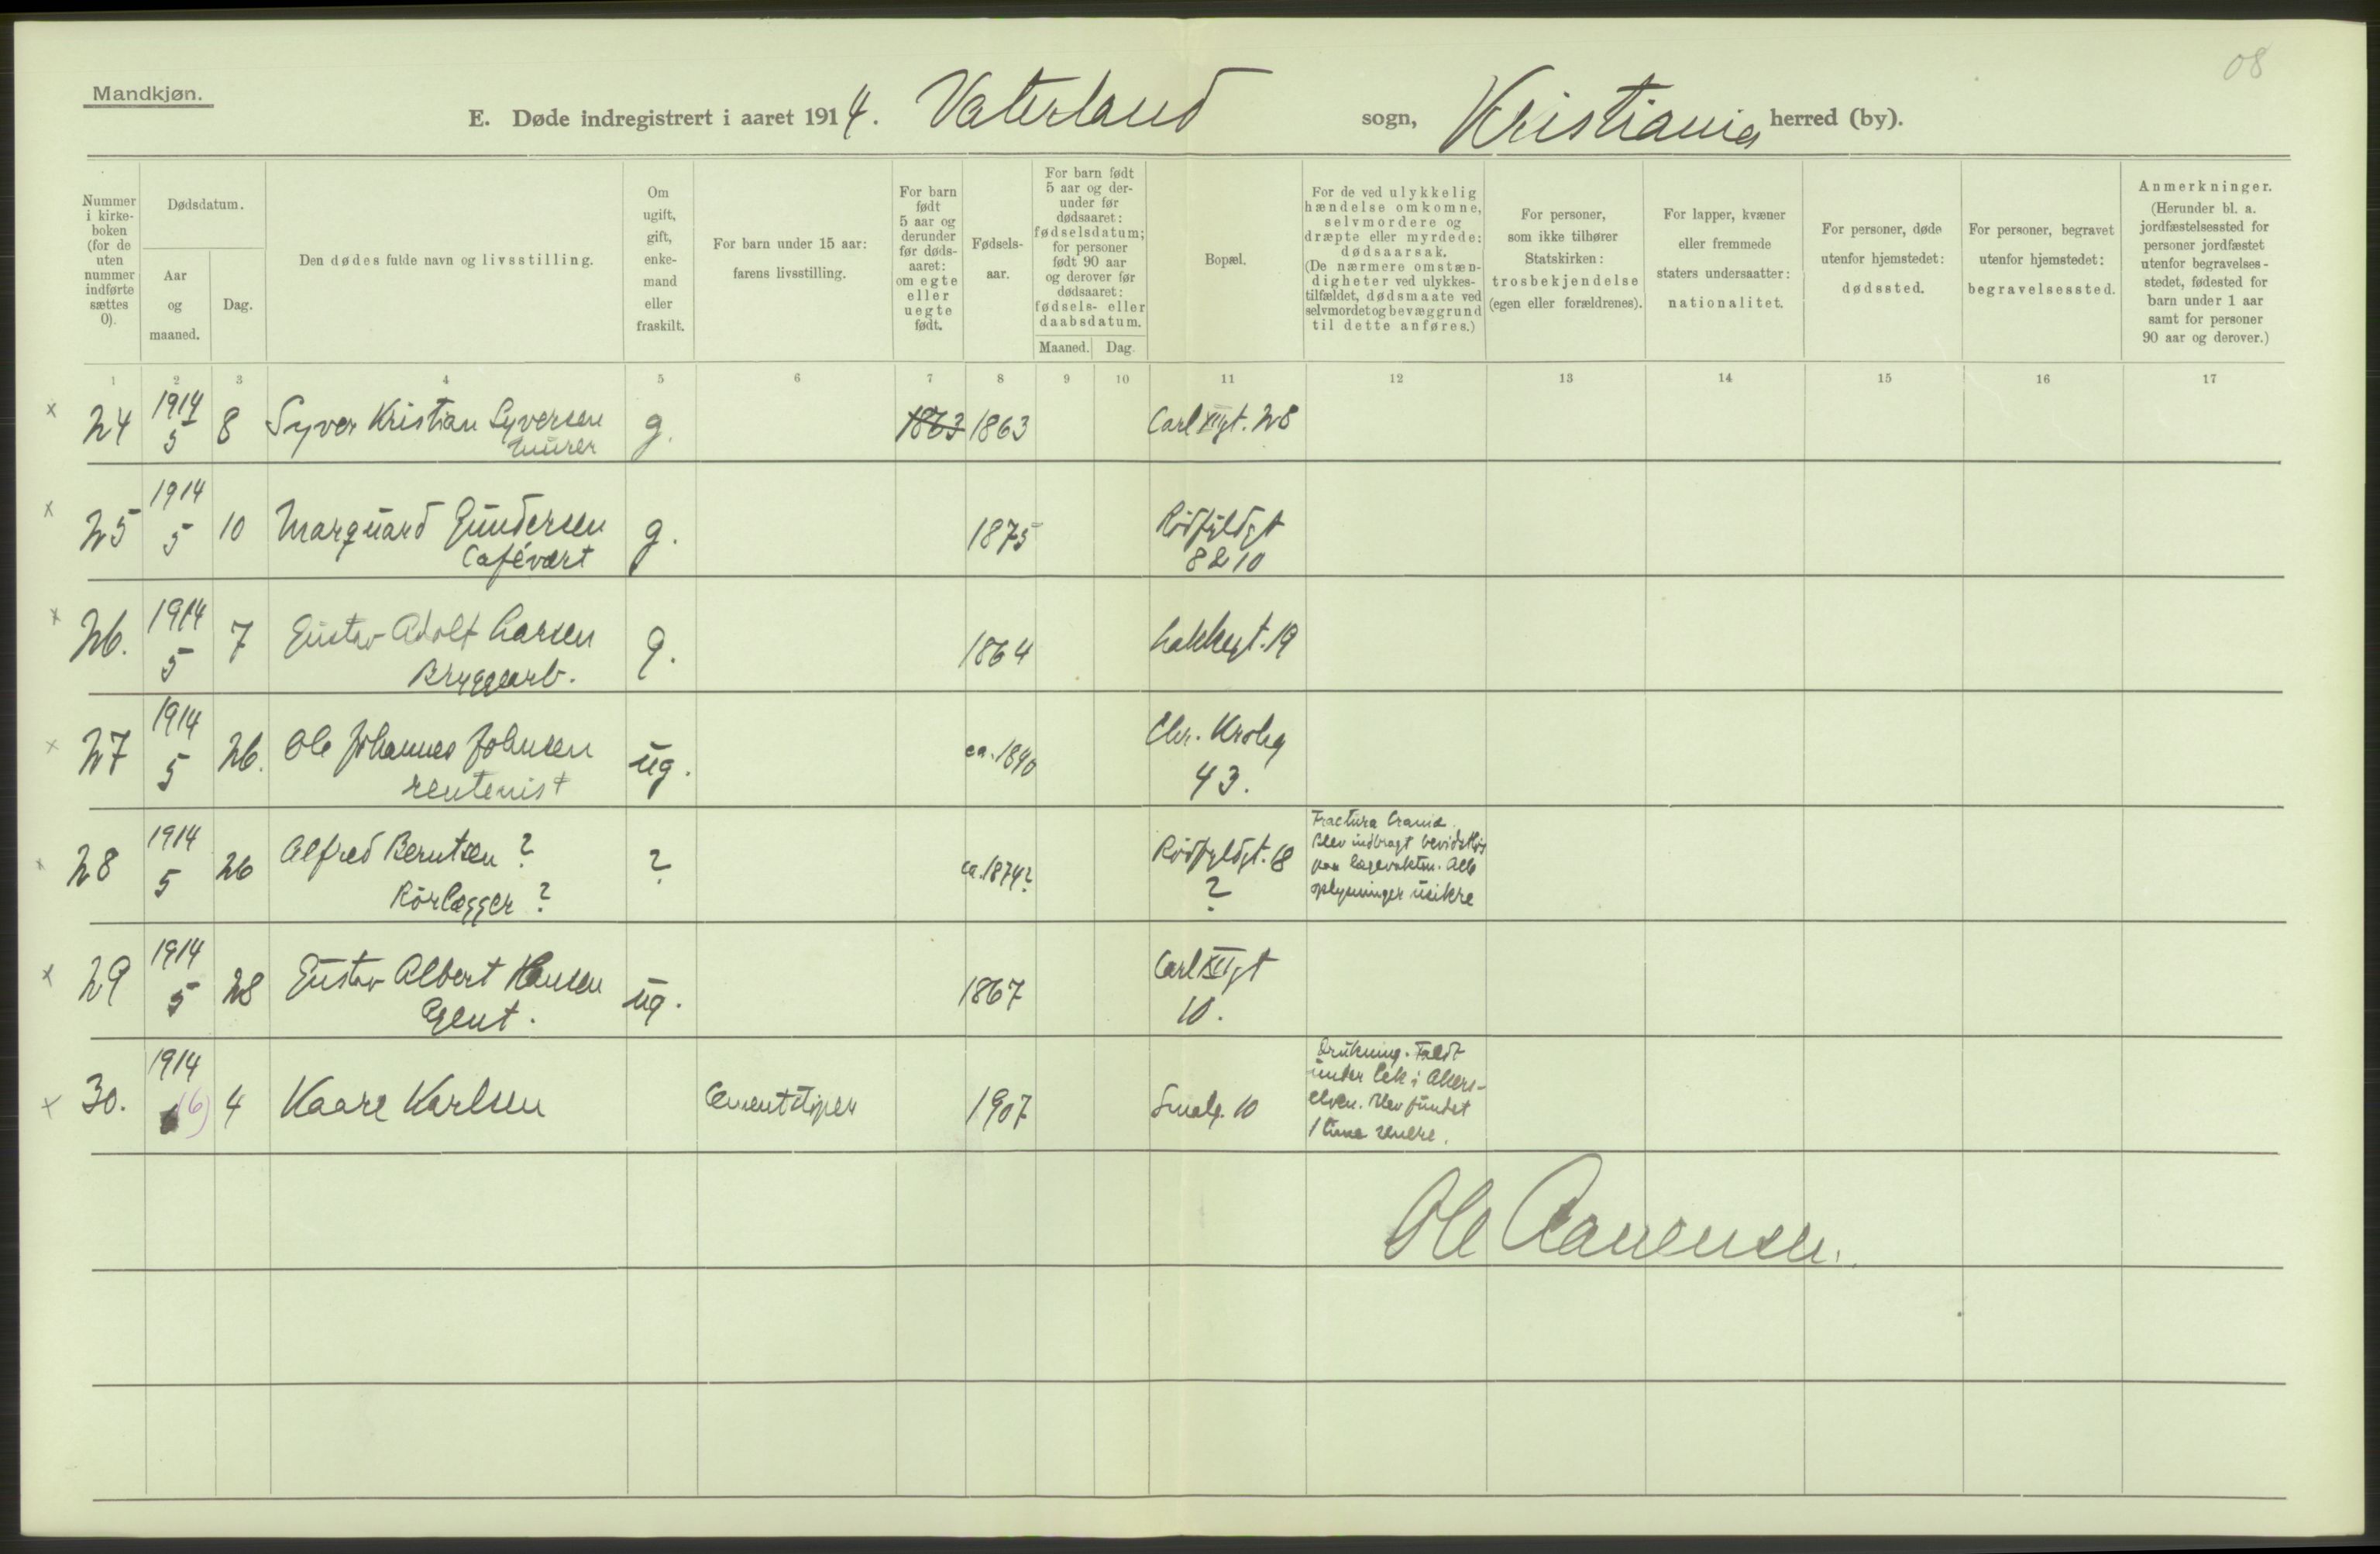 08
Mandkjøn.
E. Døde indregistrert i aaret 1914. Vaterland sogn, Kristiania herred (by).
Nummer i kirke-boken (for de uten nummer indførte sættes 0).
Dødsdatum.
Aar og maaned.
Dag.
Den dødes fulde navn og livsstilling.
Om ugift, gift, enke-mand eller fraskilt.
For barn under 15 aar: farens livsstilling.
For barn født 5 aar og derunder før døds-aaret: om egte eller uegte født.
Fødsels-aar.
For barn født 5 aar og der-under før dødsaaret: fødselsdatum; for personer født 90 aar og derover før dødsaaret: fødsels- eller daabsdatum.
Maaned. Dag.
Bopæl.
For de ved ulykkelig hændelse omkomne, selvmordere og dræpte eller myrdede: dødsaarsak. (De nærmere omstæn-digheter ved ulykkes-tilfældet, dødsmaate ved selvmordet og bevæggrund til dette anføres.)
For personer, som ikke tilhører Statskirken: trosbekjendelse (egen eller forældrenes).
For lapper, kvæner eller fremmede staters undersaatter: nationalitet.
For personer, døde utenfor hjemstedet: dødssted.
For personer, begravet utenfor hjemstedet: begravelsessted.
Anmerkninger. (Herunder bl. a. jordfæstelsessted for personer jordfæstet utenfor begravelses-stedet, fødested for barn under 1 aar samt for personer 90 aar og derover.)
1 2 3 4 5 6 7 8 9 10 11 12 13 14 15 16 17
x 24 1914 5 8 Syver Kristian Syversen g. 1863 1863 Carl XIIgt. 28
Murer
x 25 1914 5 10 Marquard Gundersen g. 1875 Rödfyldgt
Cafévært 8 & 10
x 26. 1914 5 7 Gustav Adolf Larsen g. 1864 Lakkegt. 19
Bryggearb.
x 27 1914 5 26. Ole Johannes Johnsen ug. ca. 1840 Chr. Krohg
rentenist 43.
x 28 1914 5 26 Alfred Berntsen ? ? ca. 1874? Rödfyldgt. 18
Rörlægger ? ?
Fractura Cranie.
Blev indbragt bevidstlös
paa lægevakten. Alle
oplysninger usikre
x 29 1914 5 28 Gustav Albert Hansen ug. 1867 Carl XIIgt
Agent. 10.
x 30. 1914 (6) 4 Kaare Karlsen Cementstöper 1907 Smalg. 10
Drukning. Faldt
under lek i Akers-
elven. Blev fundet
1 time senere.
Ole